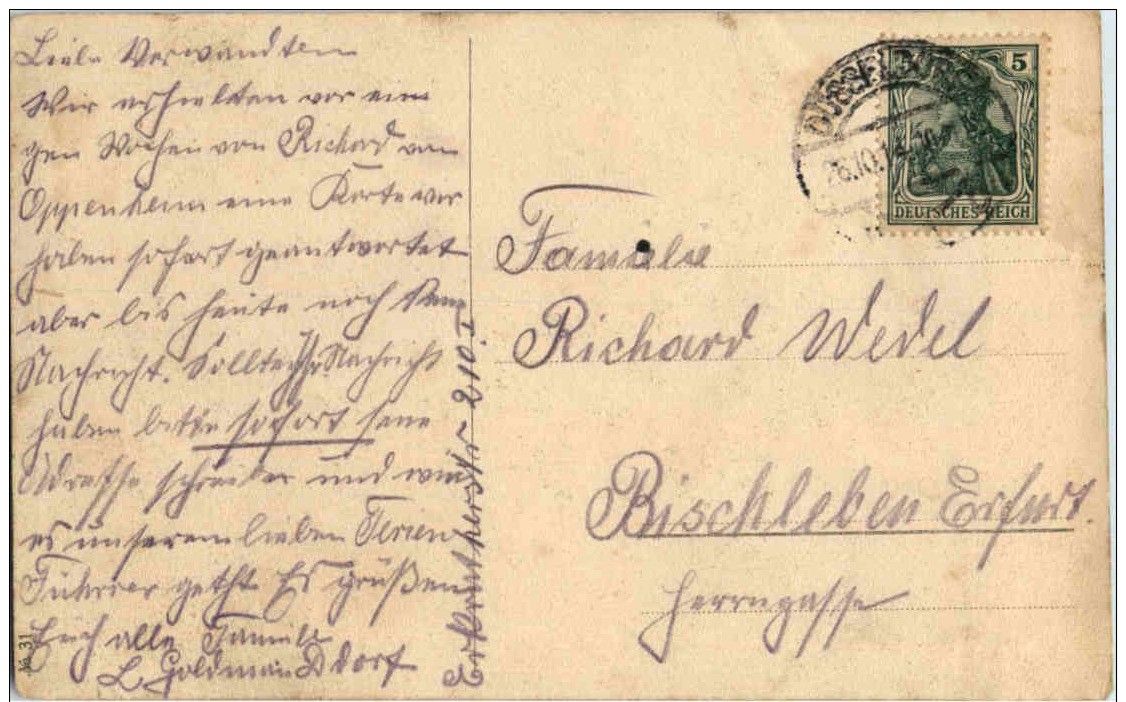 Liebe Verwandten
Wir erhielten vor eini
gen Wochen von Richard von
Oppenheim eine Karte wir
haben sofort geantwortet
aber bis heute noch keine
Nachricht. Solltet Ihr Nachricht
haben bitte sofort seine
Adresse schreiben und wie
es unserem lieben Ferien
Führer geht. Es grüßen
Euch alle Familie
L. Goldmann Ddorf
210. I
No 31
DÜSSELDORF
26.10.
5
DEUTSCHES REICH
Familie
Richard Wedel
Bischleben Erfurt.
Herrngasse